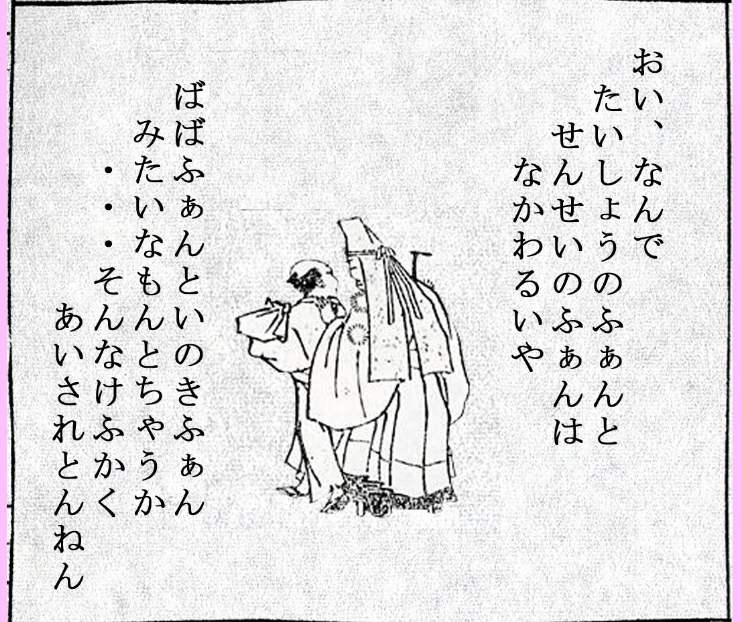 おい、なんで
たいしょうのふぁんと
せんせいのふぁんは
なかわるいや
ばばふぁんといのきふぁん
みたいなもんとちゃうか
・・・そんなけふかく
あいされとんねん